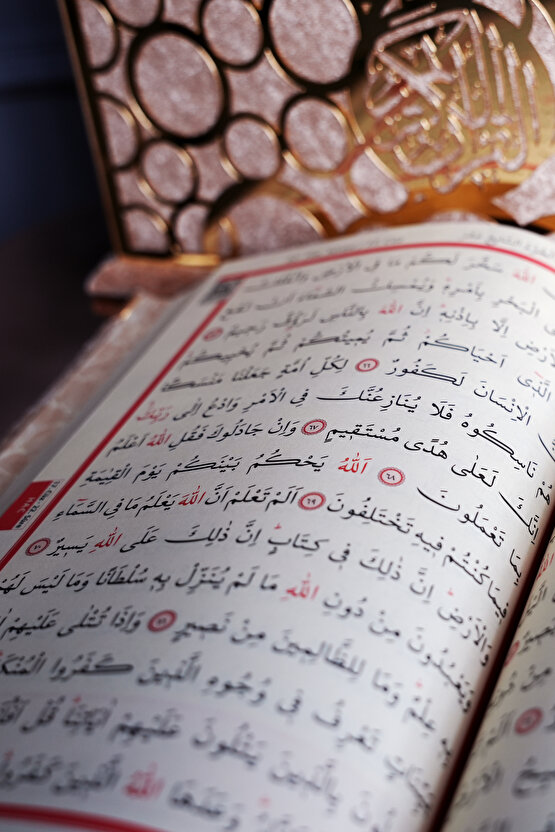 اللهَ سَخَّرَ لَكُمْ مَا فِي الْاَرْضِ وَالْفُلْكَ
الْبَحْرِ بِاَمْرِهِ وَيُمْسِكُ السَّمَاءَ اَنْ تَقَعَ
اِلَّا بِاِذْنِهِ اِنَّ اللهَ بِالنَّاسِ لَرَؤُفٌ رَحِيمٌ ٦٥
الَّذِي اَحْيَاكُمْ ثُمَّ يُمِيتُكُمْ ثُمَّ يُحْيِيكُمْ
الْاِنْسَانَ لَكَفُورٌ ٦٦ لِكُلِّ اُمَّةٍ جَعَلْنَا مَنْسَكًا
هُمْ نَاسِكُوهُ فَلَا يُنَازِعُنَّكَ فِي الْاَمْرِ وَادْعُ اِلٰى رَبِّكَ
اِنَّكَ لَعَلٰى هُدًى مُسْتَقِيمٍ ٦٧ وَاِنْ جَادَلُوكَ فَقُلِ اللهُ اَعْلَمُ
بِمَا تَعْمَلُونَ ٦٨ اَللهُ يَحْكُمُ بَيْنَكُمْ يَوْمَ الْقِيٰمَةِ
فِيمَا كُنْتُمْ فِيهِ تَخْتَلِفُونَ ٦٩ اَلَمْ تَعْلَمْ اَنَّ اللهَ يَعْلَمُ مَا فِي السَّمَاءِ
وَالْاَرْضِ اِنَّ ذٰلِكَ فِي كِتَابٍ اِنَّ ذٰلِكَ عَلَى اللهِ يَسِيرٌ ٧٠
وَيَعْبُدُونَ مِنْ دُونِ اللهِ مَا لَمْ يُنَزِّلْ بِهِ سُلْطَانًا وَمَا لَيْسَ لَهُمْ
بِهِ عِلْمٌ وَمَا لِلظَّالِمِينَ مِنْ نَصِيرٍ ٧١ وَاِذَا تُتْلٰى عَلَيْهِمْ
تَعْرِفُ فِي وُجُوهِ الَّذِينَ كَفَرُوا
بِالَّذِينَ يَتْلُونَ عَلَيْهِمْ اٰيَاتِنَا قُلْ
وَعَدَهَا اللهُ الَّذِينَ كَفَرُوا